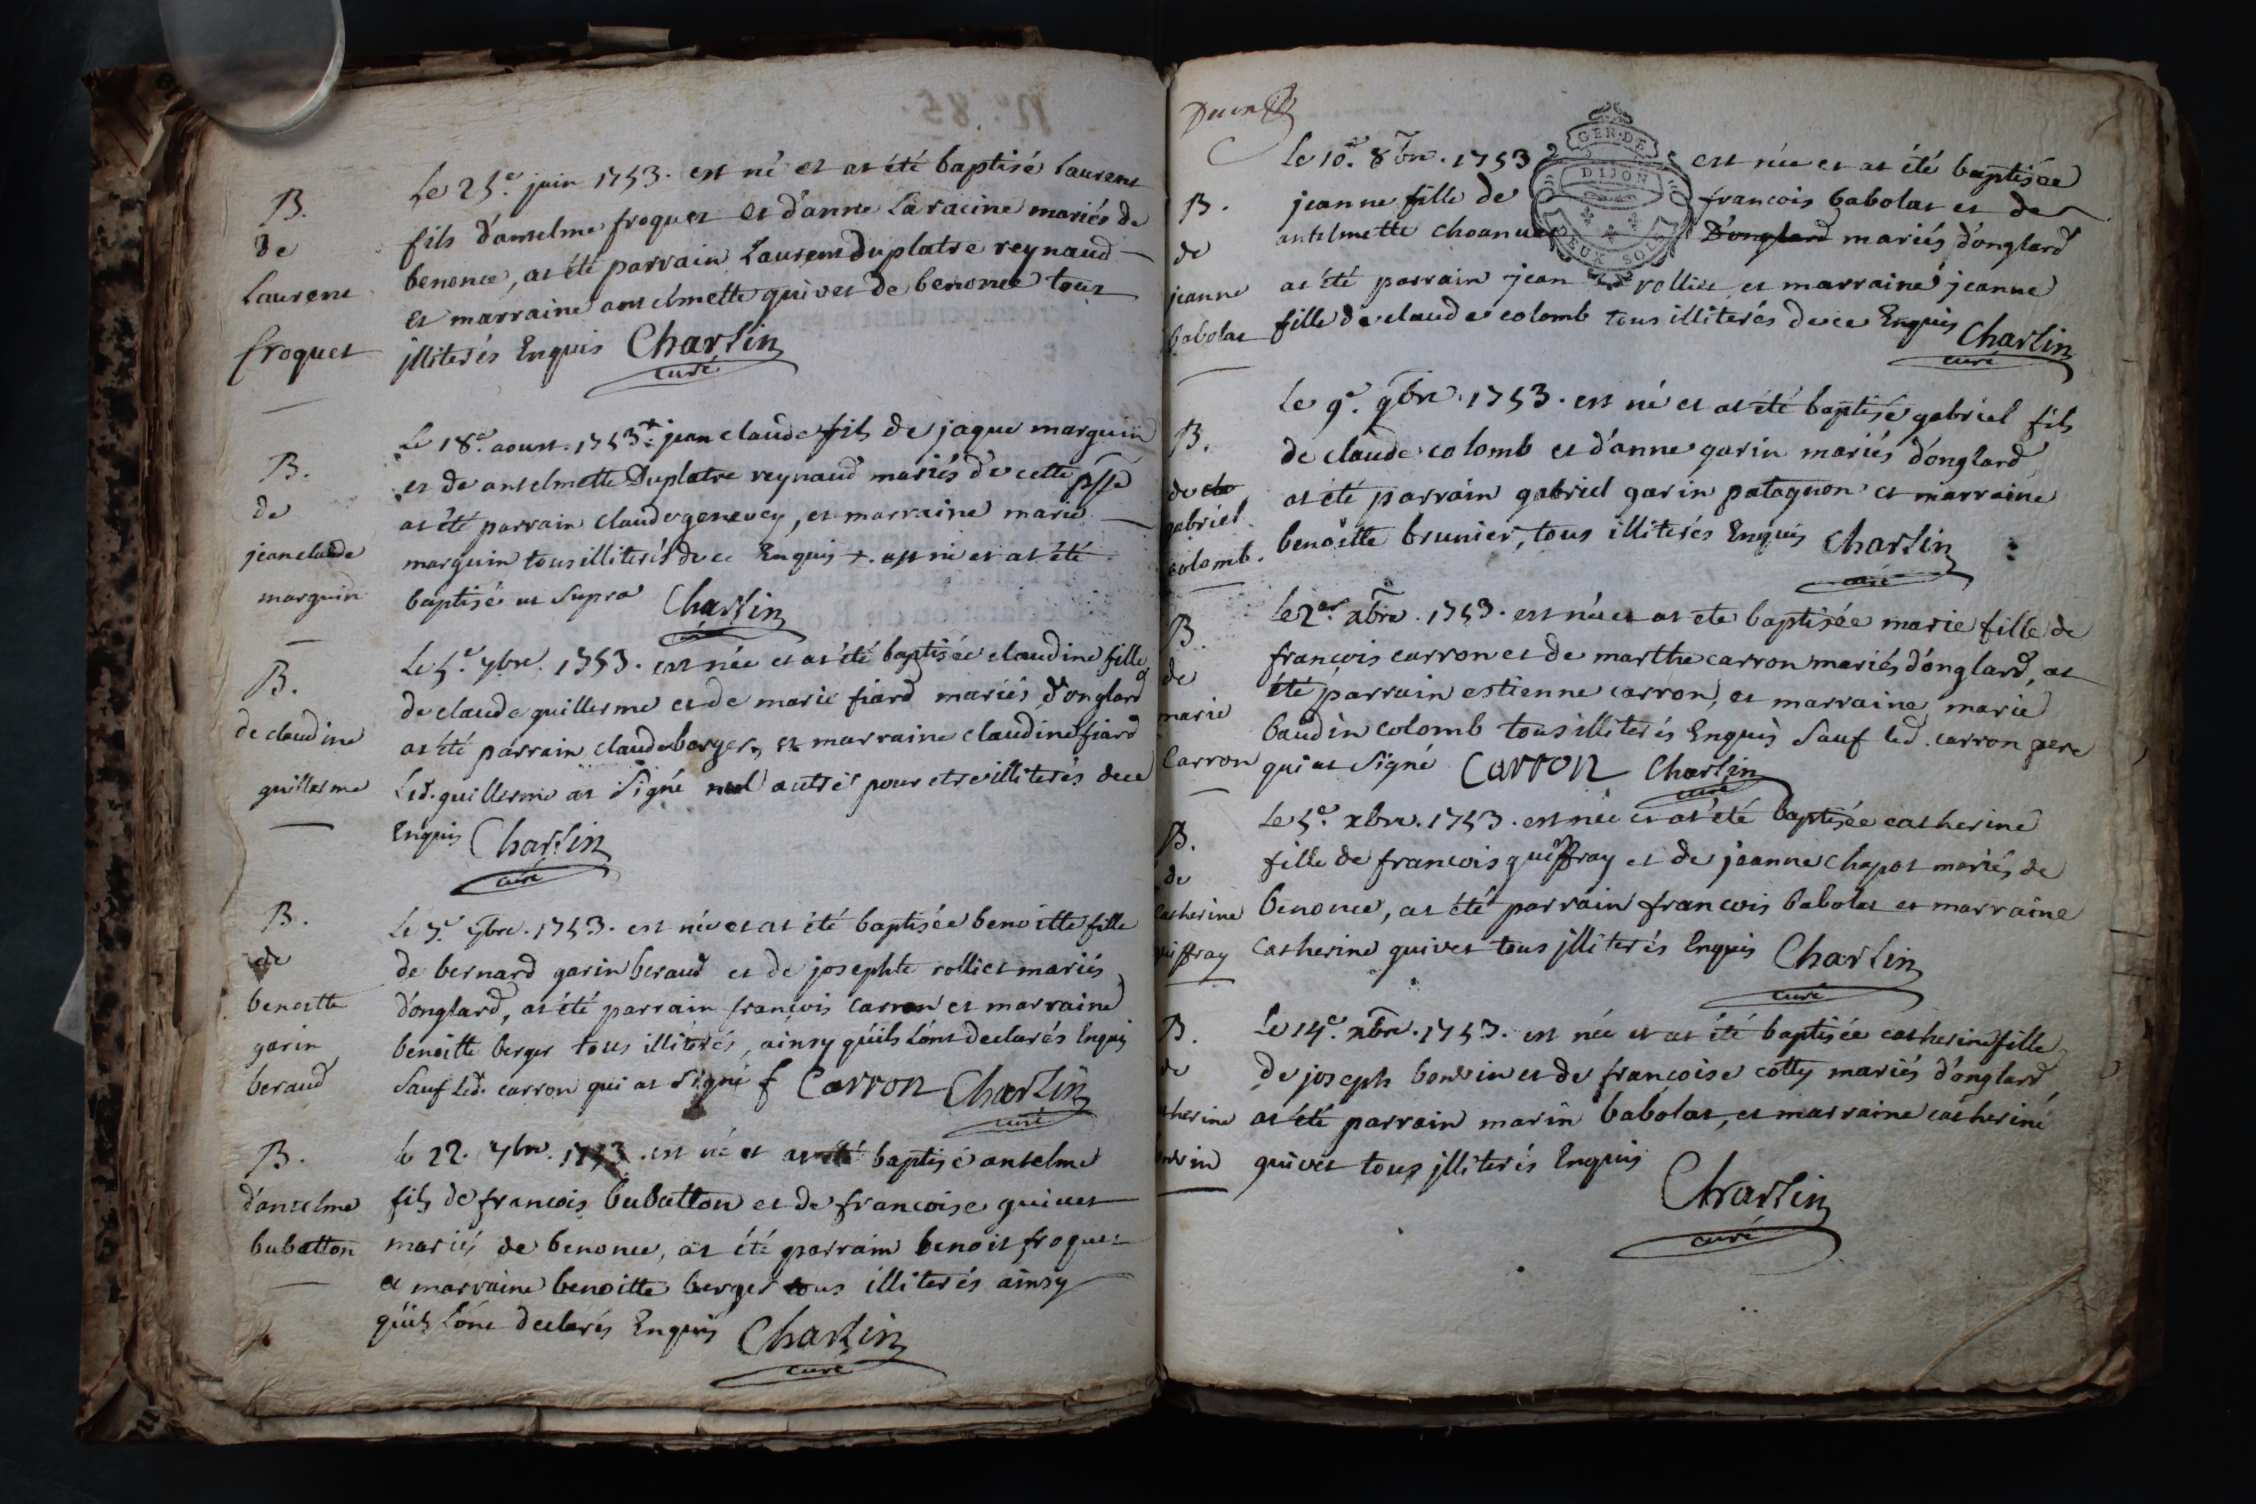 B.
de
Laurent
froquet
Le 25.e juin 1753. est né et at été baptisé Laurent
fils d'anselme froquet et d'anne Laracine mariés de
benonce, at été parrain Laurent Duplatre reynaud
et marraine anselmette quivet de benonce tous
jlliterés Enquis Charlin
curé
B.
de
jean claude
marguin
Le 18.e aoust. 1753 + jean claude fils de jaque marguin
et de anselmette Duplatre reynaud mariés de cette psse
at été parrain claude genevey, et marraine marie
marguin tous illiterés de ce Enquis +. est né et at été
baptisé ut supra Charlin
curé
B.
de claudine
guillerme
Le 5.e 7bre. 1753. est née et at été baptisée claudine fille
de claude guillerme et de marie fiard mariés d'onglard
at été parrain claude berger, et marraine claudine fiard
Led. guillerme at signé nul autre pour etre illiterés de ce
Enquis Charlin
curé
B.
de
benoitte
garin
beraud
Le 7.e 7bre. 1753. est née et at été baptisée benoitte fille
de bernard garin beraud et de josephte rolliet mariés
d'onglard, at été parrain françois carron et marraine
benoitte berger tous illiterés, ainsy qu'ils L'ont declarés Enquis
sauf Led. carron qui at signé f Carron Charlin
curé
B.
d'anselme
bubatton
le 22. 7bre. 1753. est né et at été baptisé anselme
fils de françois bubatton et de françoise quivet
mariés de benonce, at été parrain benoit froquet
et marraine benoitte berger tous illiterés ainsy
qu'ils L'ont declarés Enquis Charlin
curé
GEN. DE
DIJON
DEUX SOLS
B.
de
jeanne
babolat
Le 10.e 8bre. 1753 est née et at été baptisée
jeanne fille de françois babolat et de
antelmette D'onglard mariés d'onglard
at été parrain jean rolliet et marraine jeanne
fille de claude colomb tous illiterés de ce Enquis Charlin
curé
B.
de cla
gabriel
colomb.
Le 9.e 9bre. 1753. est né et at été baptisé gabriel fils
de claude colomb et d'anne garin mariés d'onglard
at été parrain gabriel garin patagnon et marraine
benoitte brunier, tous illiterés Enquis Charlin
curé
B.
de
marie
Carron
Le 2er xbre. 1753. est née et at été baptisée marie fille de
françois carron et de marthe carron mariés d'onglard, at
été parrain estienne carron, et marraine marie
baudin colomb tous illiterés Enquis sauf Led. carron pere
qui at signé Carron Charlin
curé
B.
de
Catherine
guiffray
Le 5.e xbre. 1753. est née et at été baptisée catherine
fille de françois guiffray et de jeanne chapot mariés de
benonce, at été parrain françois babolat et marraine
catherine quivet tous jlliterés Enquis Charlin
curé
B.
de
catherine
bonvin
Le 14.e xbre. 1753. est née et at été baptisée catherine fille
de joseph bonvin et de françoise cotty mariés d'onglard
at été parrain marin babolat, et marraine catherine
quivet tous jlliterés Enquis
Charlin
curé